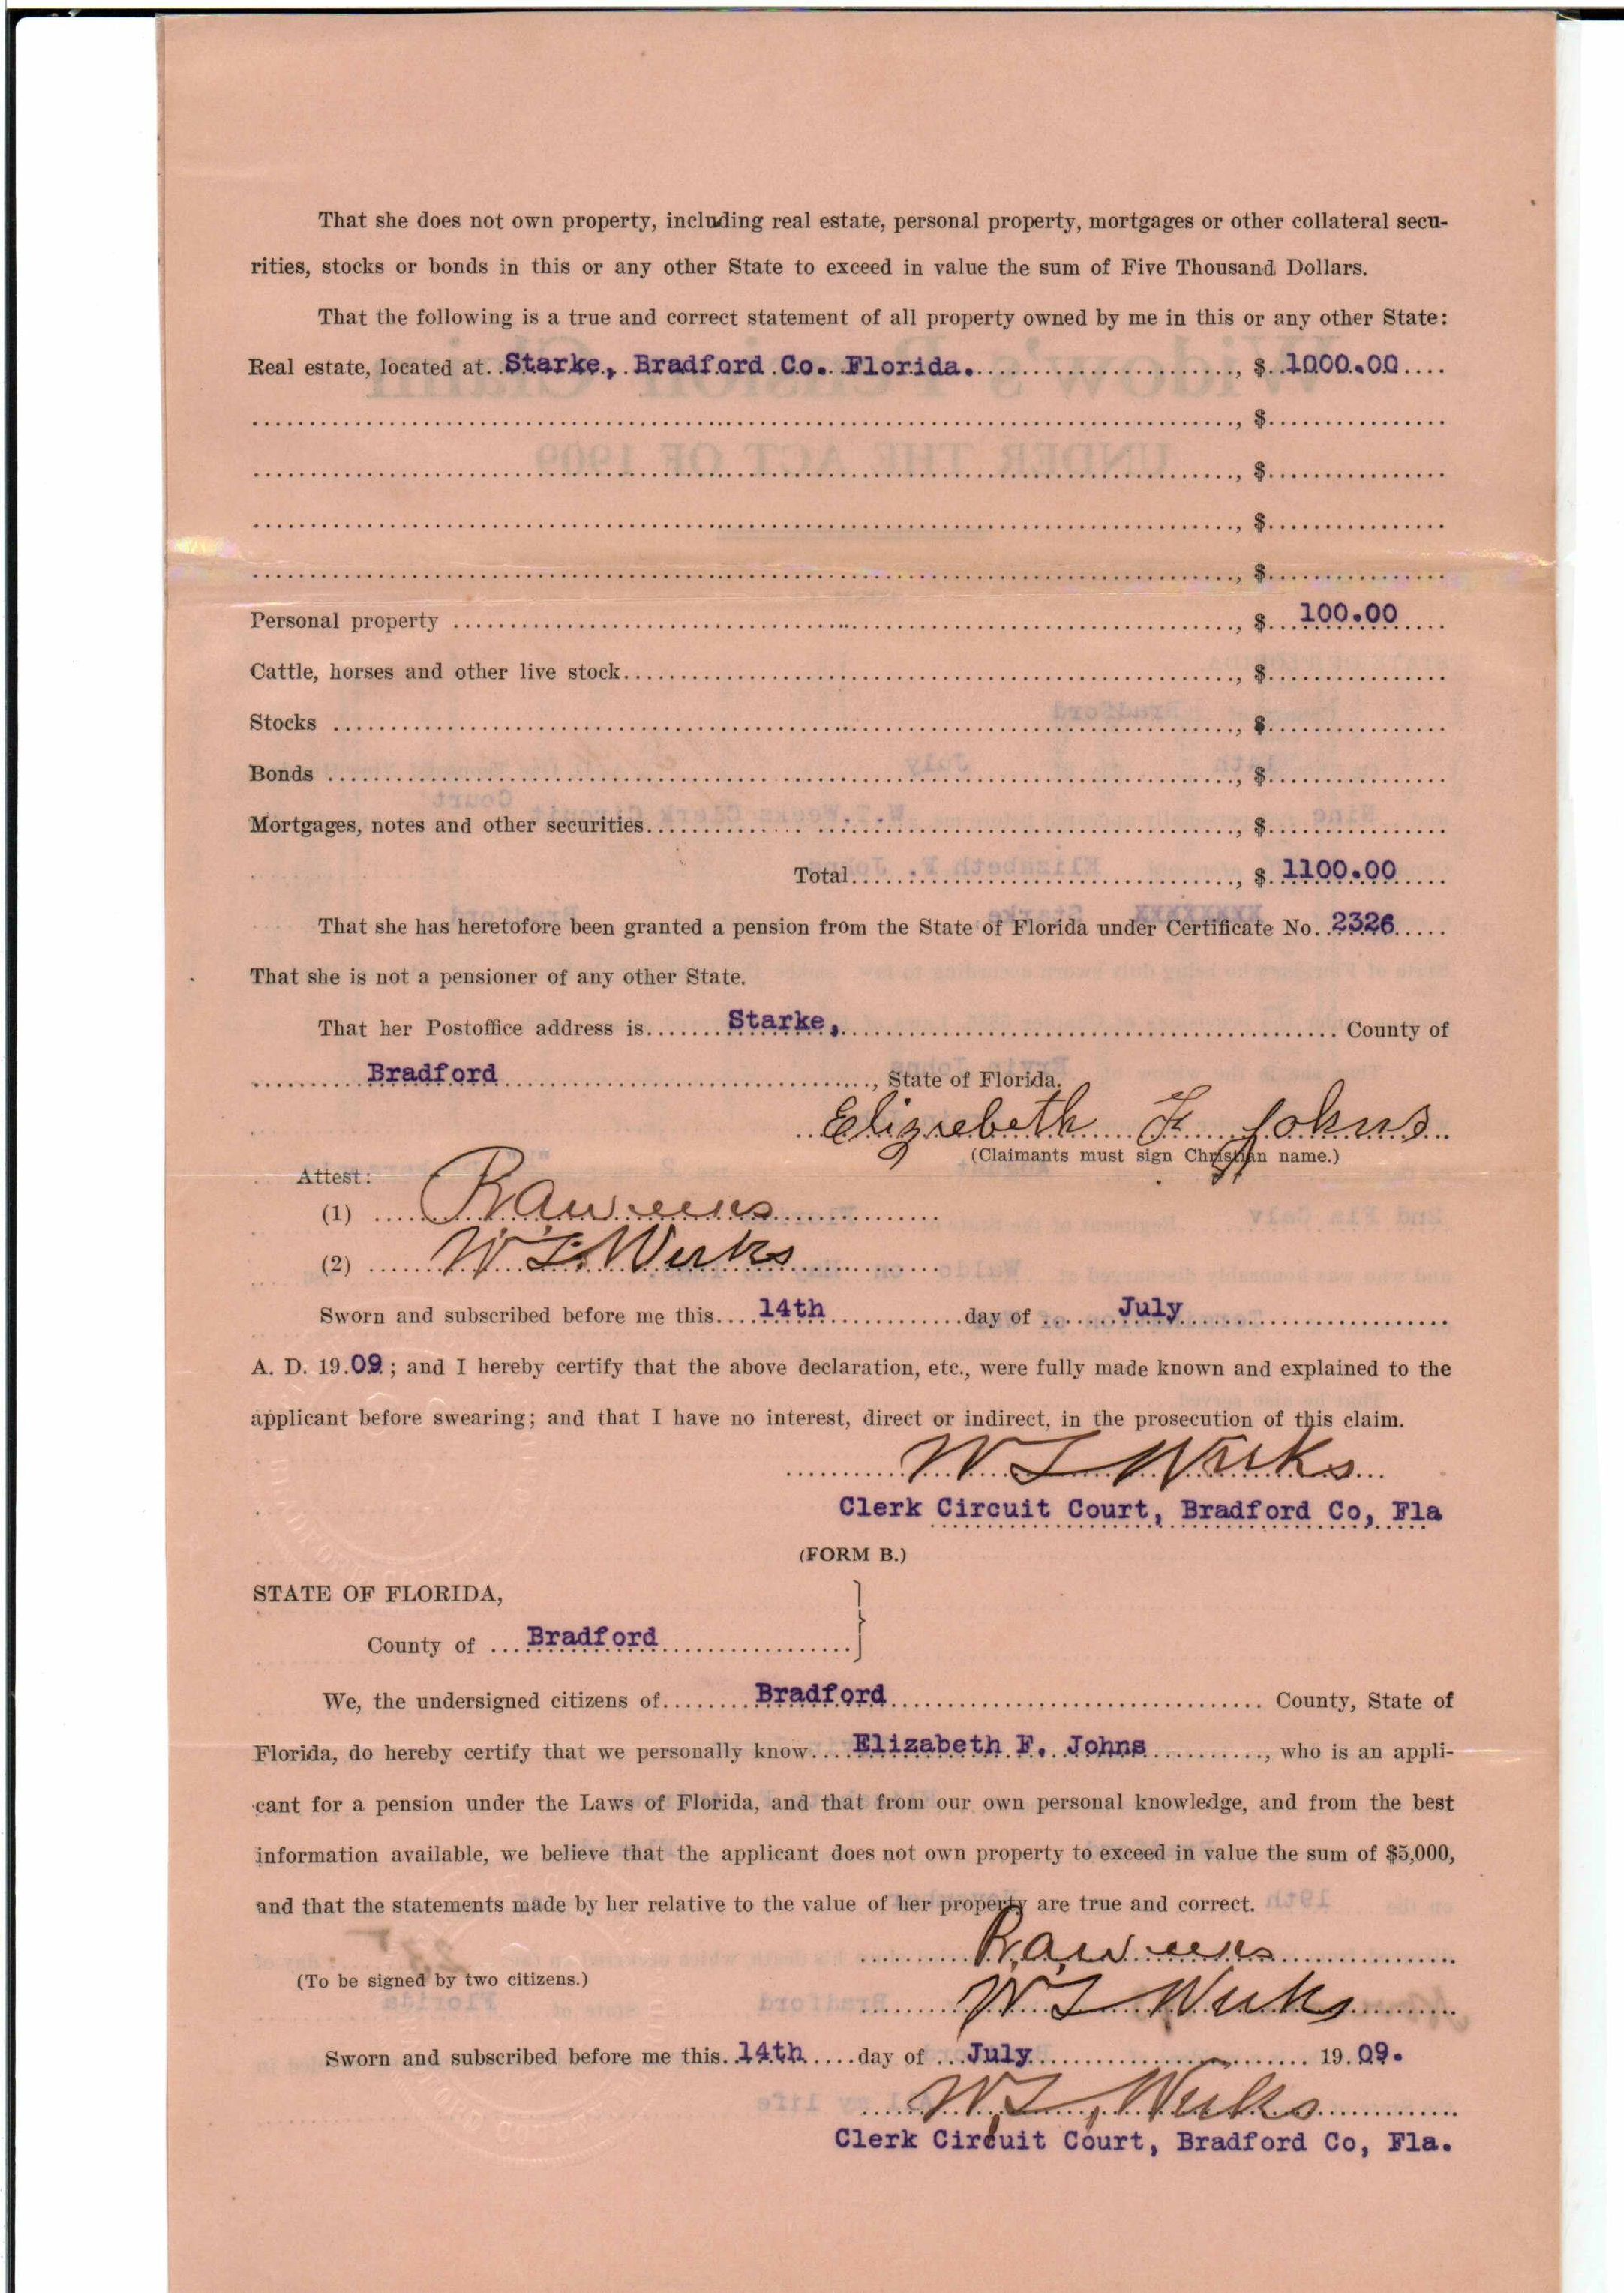 That she does not own property, including real estate, personal property, mortgages or other collateral secu-
rities, stocks or bonds in this or any other State to exceed in value the sum of Five Thousand Dollars.
That the following is a true and correct statement of all property owned by me in this or any other State:
Real estate, located at Starke, Bradford Co. Florida. , $ 1000.00
, $
, $
, $
, $
Personal property , $ 100.00
Cattle, horses and other live stock , $
Stocks , $
Bonds , $
Mortgages, notes and other securities , $
Total , $ 1100.00
That she has heretofore been granted a pension from the State of Florida under Certificate No. 2326
That she is not a pensioner of any other State.
That her Postoffice address is Starke, County of
Bradford , State of Florida.
Elizabeth F. Johns
(Claimants must sign Christian name.)
Attest:
(1) R A Weeks
(2) W. L. Weeks
Sworn and subscribed before me this 14th day of July
A. D. 19 09 ; and I hereby certify that the above declaration, etc., were fully made known and explained to the
applicant before swearing; and that I have no interest, direct or indirect, in the prosecution of this claim.
W L Weeks
Clerk Circuit Court, Bradford Co, Fla
(FORM B.)
STATE OF FLORIDA,
County of Bradford
We, the undersigned citizens of Bradford County, State of
Florida, do hereby certify that we personally know Elizabeth F. Johns , who is an appli-
cant for a pension under the Laws of Florida, and that from our own personal knowledge, and from the best
information available, we believe that the applicant does not own property to exceed in value the sum of $5,000,
and that the statements made by her relative to the value of her property are true and correct.
R. A. Weeks
(To be signed by two citizens.)
W L Weeks
Sworn and subscribed before me this 14th day of July 19 09.
W. L. Weeks
Clerk Circuit Court, Bradford Co, Fla.